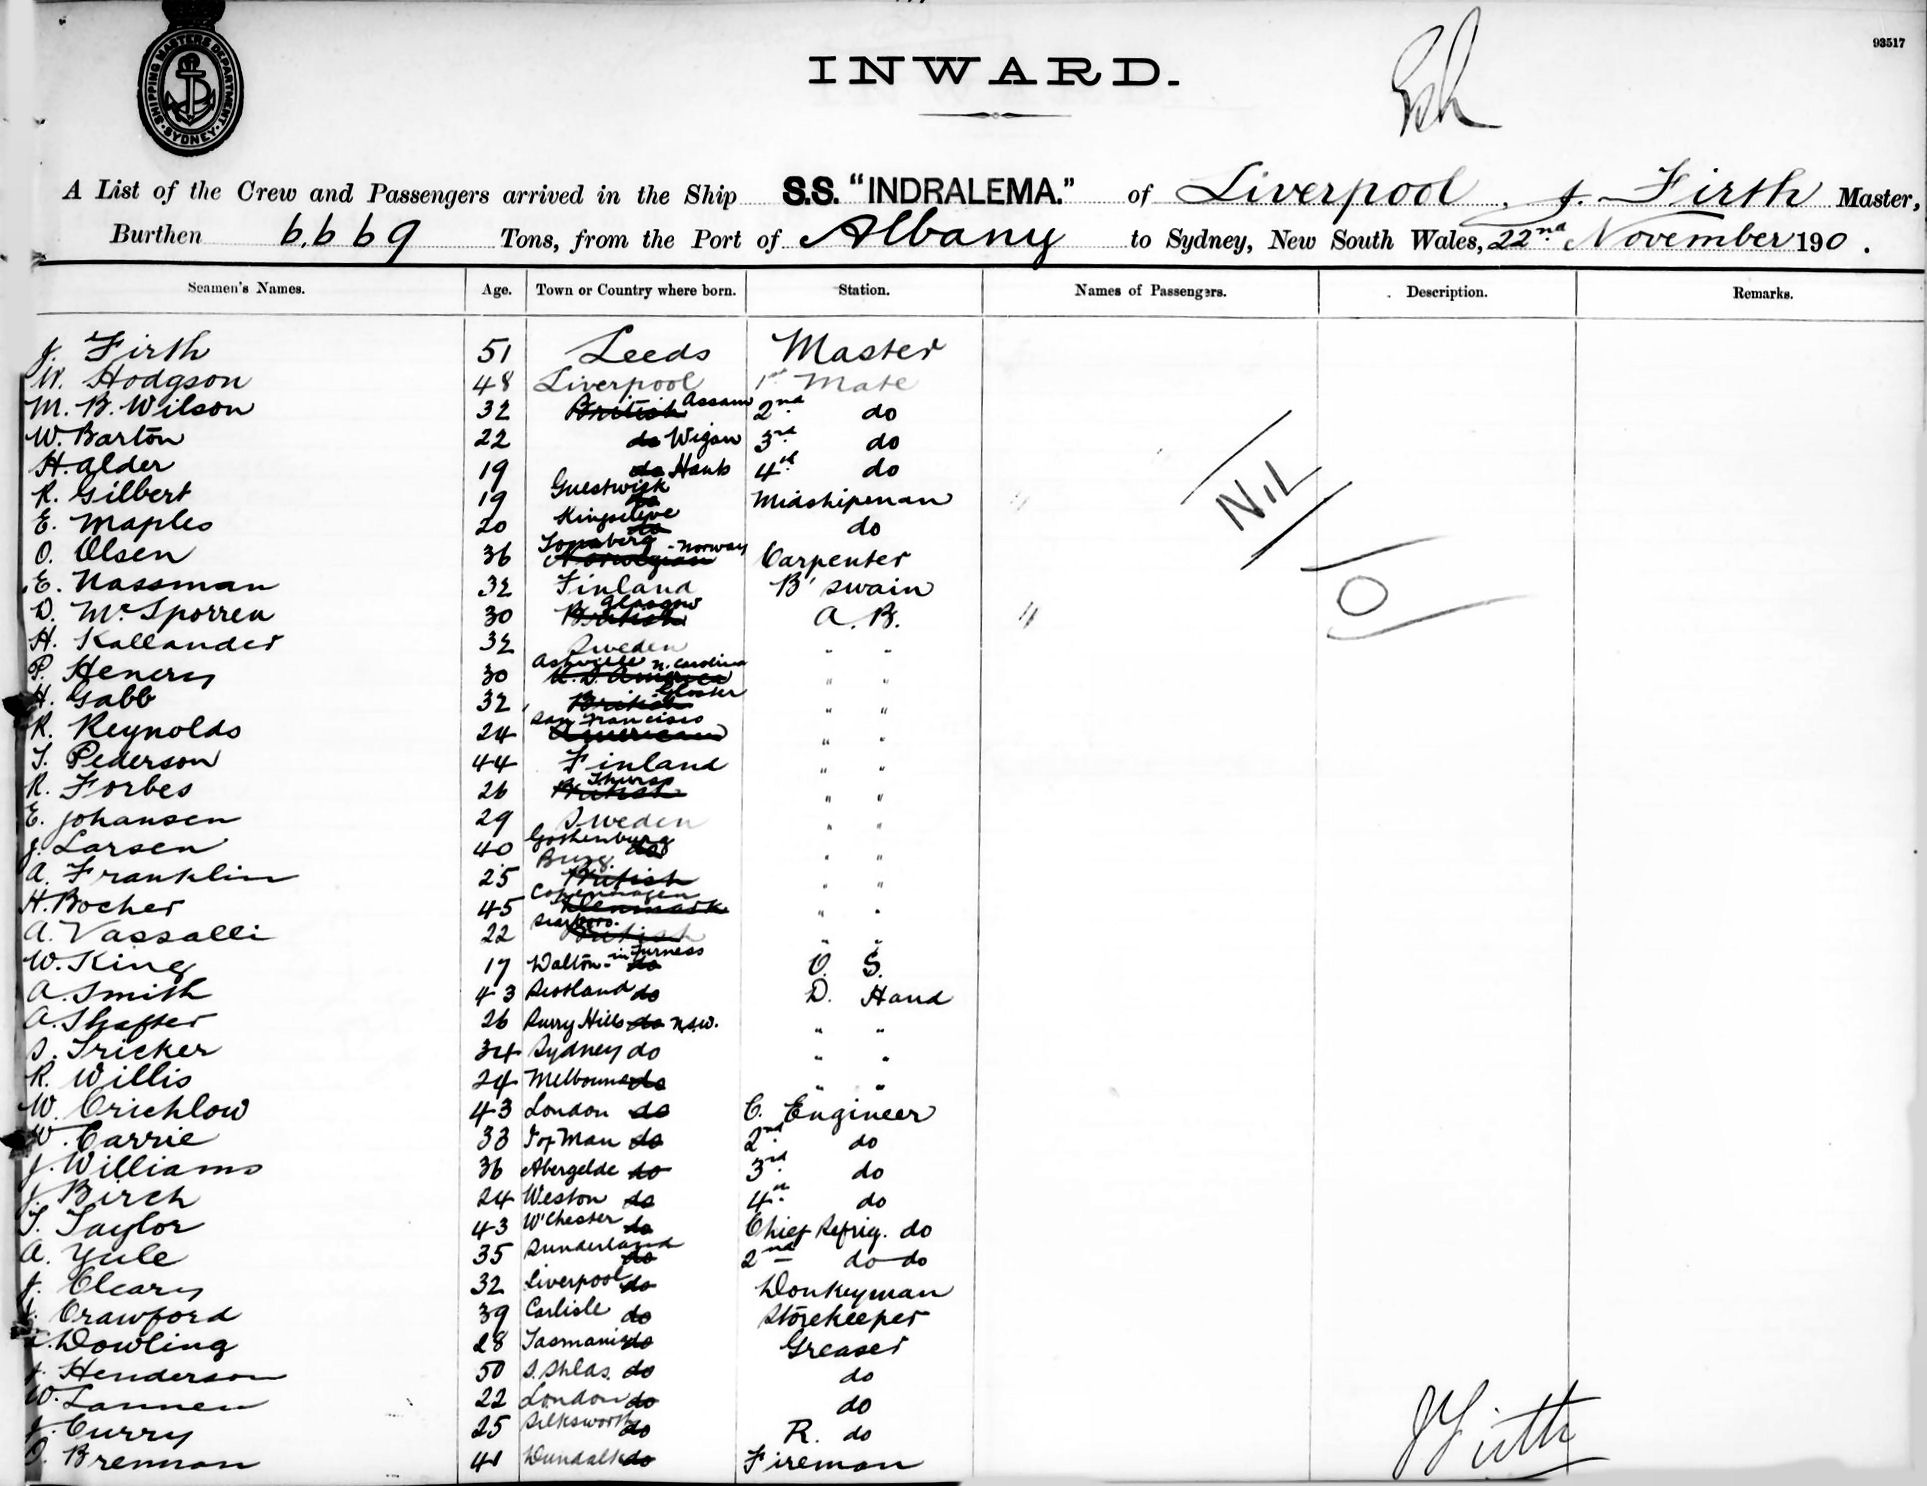 SHIPPING MASTERS DEPARTMENT. SYDNEY
93517
INWARD.
A List of the Crew and Passengers arrived in the Ship S.S. "INDRALEMA." of Liverpool, J. Firth Master,
Burthen 6,669 Tons, from the Port of Albany to Sydney, New South Wales, 22nd November 190 .
Seamen's Names. Age. Town or Country where born. Station. Names of Passengers. Description. Remarks.
J. Firth 51 Leeds Master
W. Hodgson 48 Liverpool 1st Mate
M. B. Wilson 32 British Assam 2nd do
W. Barton 22 do Wigan 3rd do
H. Alder 19 do Hants 4th do
R. Gilbert 19 Guestwick do Midshipman
E. Maples 20 do do
O. Olsen 36 Norwegian Tonsberg - Norway Carpenter
E. Nassman 32 Finland B'swain
D. McSporren 30 British Glasgow A. B.
H. Kallander 32 Sweden " "
P. Henery 30 U. S. America Ashville N. Carolina " "
H. Gabb 32 British Gloster " "
R. Reynolds 24 American San Francisco " "
T. Pederson 44 Finland " "
R. Forbes 26 British Thurso " "
E. Johansen 29 Sweden " "
J. Larsen 40 Gothenburg do " "
A. Franklin 25 British " "
H. Bocher 45 Denmark Copenhagen " "
A. Vassalli 22 British " "
W. King 17 Walton-in Furness do O. S.
A. Smith 43 Scotland do D. Hand
A. Shafter 26 Surry Hills do N.S.W. " "
S. Tricker 34 Sydney do " "
R. Willis 24 Melbourne do " "
W. Crichlow 43 London do C. Engineer
W. Carrie 33 I of Man do 2nd do
J. Williams 36 Abergelde do 3rd do
J. Birch 24 Weston do 4th do
T. Taylor 43 W'Chester do Chief Refrig. do
A. Yule 35 Sunderland do 2nd do do
J. Cleary 32 Liverpool do Donkeyman
Crawford 39 Carlisle do Storekeeper
Dowling 28 Tasmania do Greaser
J. Henderson 50 S. Shlds. do do
W. Lannen 22 London do do
J. Curry 25 Silksworth do R. do
O. Brennan 41 Dundalk do Fireman
Nil
J Firth